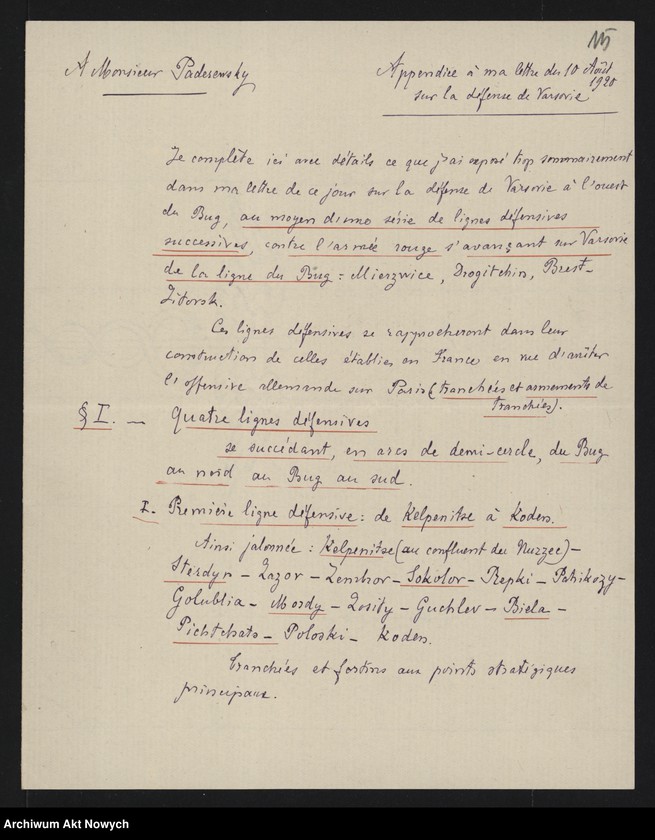 A Monsieur Paderewsky
Appendice à ma lettre du 10 Août
1920
sur la défense de Varsovie
Je complète ici avec détails ce que j'ai exposé trop sommairement
dans ma lettre de ce jour sur la défense de Varsovie à l'ouest
du Bug, au moyen d'une série de lignes défensives
successives, contre l'armée rouge s'avançant sur Varsovie
de la ligne du Bug : Mierzwice, Drogitchin, Brest-
Litovsk.
Ces lignes défensives se rapprocheront dans leur
construction de celles établies en France en vue d'arrêter
l'offensive allemande sur Paris (tranchées et armements de
tranchées).
§ I. — Quatre lignes défensives
se succédant, en arcs de demi-cercle, du Bug
au nord au Bug au sud.
I. Première ligne défensive : de Kelpenitse à Koden.
Ainsi jalonnée : Kelpenitse (au confluent du Nurzec) –
Sterdyn – Lazor – Zembror – Sokolov – Repki – Patrikozy –
Golublia – Mordy – Losity – Guchlev – Biela –
Pichtchats – Poloski – Koden.
Tranchées et fortins aux points stratégiques
principaux.
Archiwum Akt Nowych